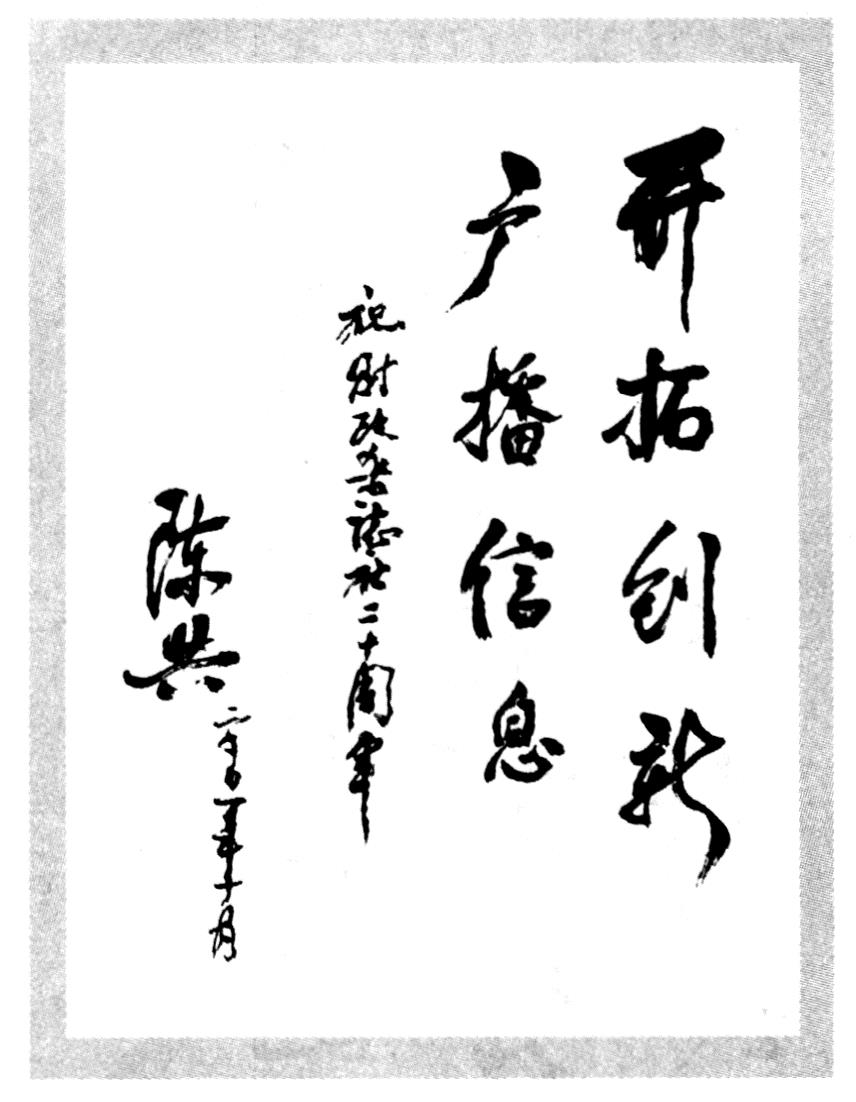 开拓创新
广播信息
祝财政杂誌社二十周年
陈共
二〇〇一年十月